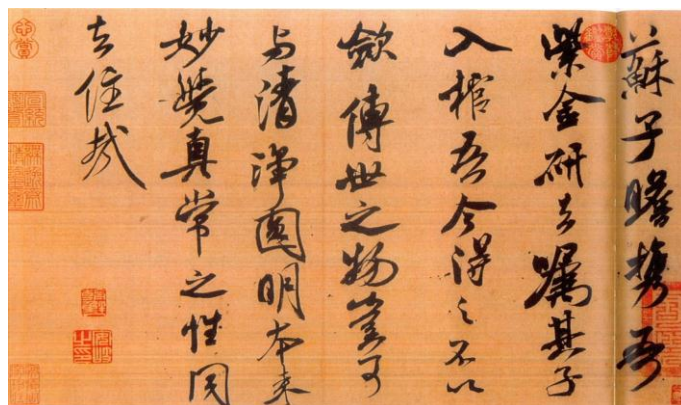 蘇子瞻携吾
紫金研去嘱其子
入棺吾今得之不以
歛傳世之物豈可
与清淨圓明本來
妙覺真常之性同
去住哉